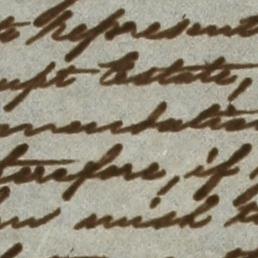 to represent
upt Estate,
mendation
terefore, if
wish to